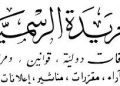 ريدة الرسميـ
قات دولية، قوانين، ومر
آراء، مقررات، مناشير، إعلانات